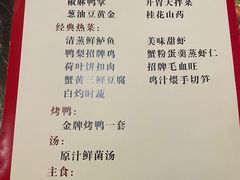 椒麻鸭掌 开胃大拌菜
葱油豆黄金 桂花山药
经典热菜:
清蒸鲜鲈鱼 美味甜虾
鸭梨招牌鸡 蟹粉蛋羹蒸虾仁
荷叶饼扣肉 招牌毛血旺
蟹黄三鲜豆腐 鸡汁煨手切笋
白灼时蔬
烤鸭:
金牌烤鸭一套
汤:
原汁鲜菌汤
主食: